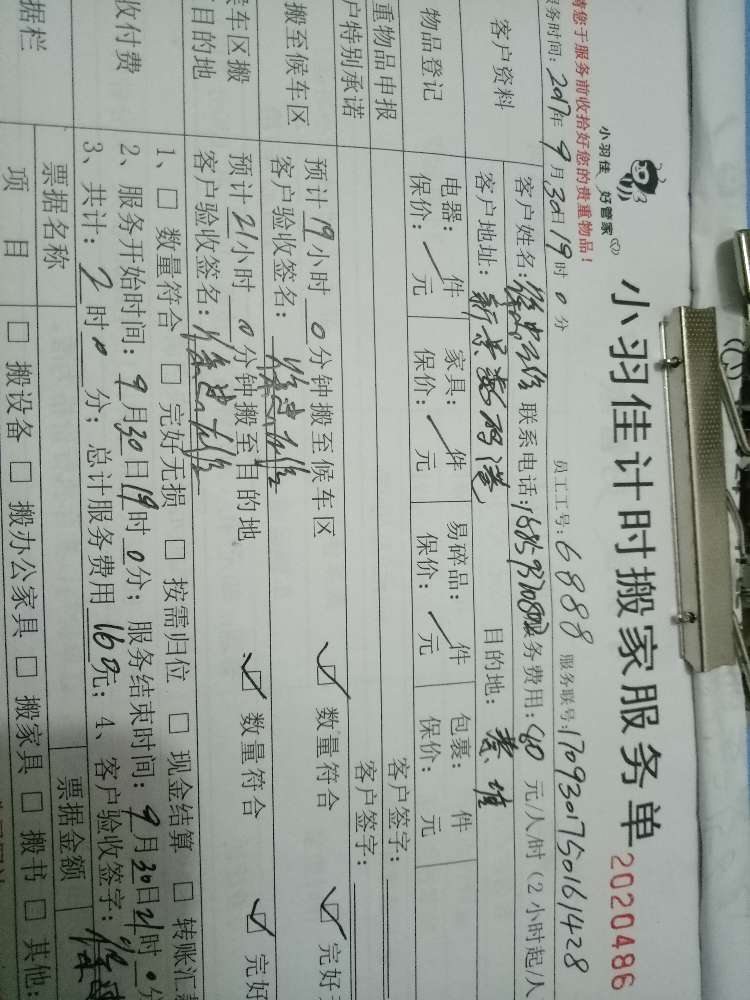 小羽佳计时搬家服务单
2020486
小羽佳 好管家
请您于服务前收拾好您的贵重物品!
服务时间: 2017年 9月30日19时 0分 员工工号: 6888 服务联号: 170930175016 1428
客户资料
客户姓名: 联系电话: 服务费用: 80 元/人/时(2小时起/人
客户地址: 目的地:
物品登记
电器: 件 家具: 件 易碎品: 件 包裹: 件
保价: 元 保价: 元 保价: 元 保价: 元
重物品申报 客户签字:
户特别承诺 客户签字:
搬至候车区
预计19小时0分钟搬至候车区 ☑ 数量符合 ☑ 完好
客户验收签名:
车区搬
目的地
预计21小时0分钟搬至目的地 ☑ 数量符合 ☑ 完好
客户验收签名:
收付费
1、□ 数量符合 □ 完好无损 □ 按需归位 □ 现金结算 □ 转账汇
2、服务开始时间: 9月30日19时0分; 服务结束时间: 9月30日21时0分
3、共计: 2时0分; 总计服务费用160元; 4、客户验收签字:
据栏
票据名称 票据金额
项 目 □ 搬设备 □ 搬办公家具 □ 搬家具 □ 搬书 □ 其他: